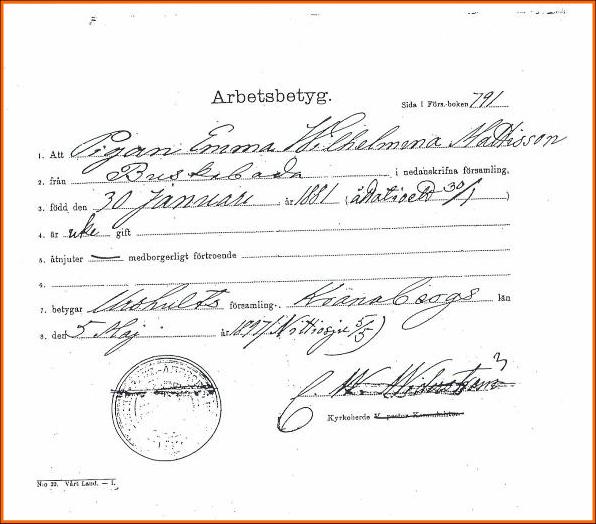 Arbetsbetyg.
Sida i Förs.-boken 791
1. Att Pigan Emma Wilhelmina Mattisson
2. från Buskeboda i nedanskrifna församling,
3. född den 30 Januari år 1881 (åttatioett 30/1)
4. är icke gift
5. åtnjuter — medborgerligt förtroende
6.
7. betygar Urshults församling, Kronobergs län
8. den 5 Maj år 1897 (Nittiosju 5/5)
Kyrkoherde
N:o 22. Vårt Land. — I.